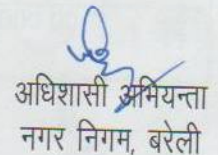 अधिशासी अभियन्ता
नगर निगम, बरेली